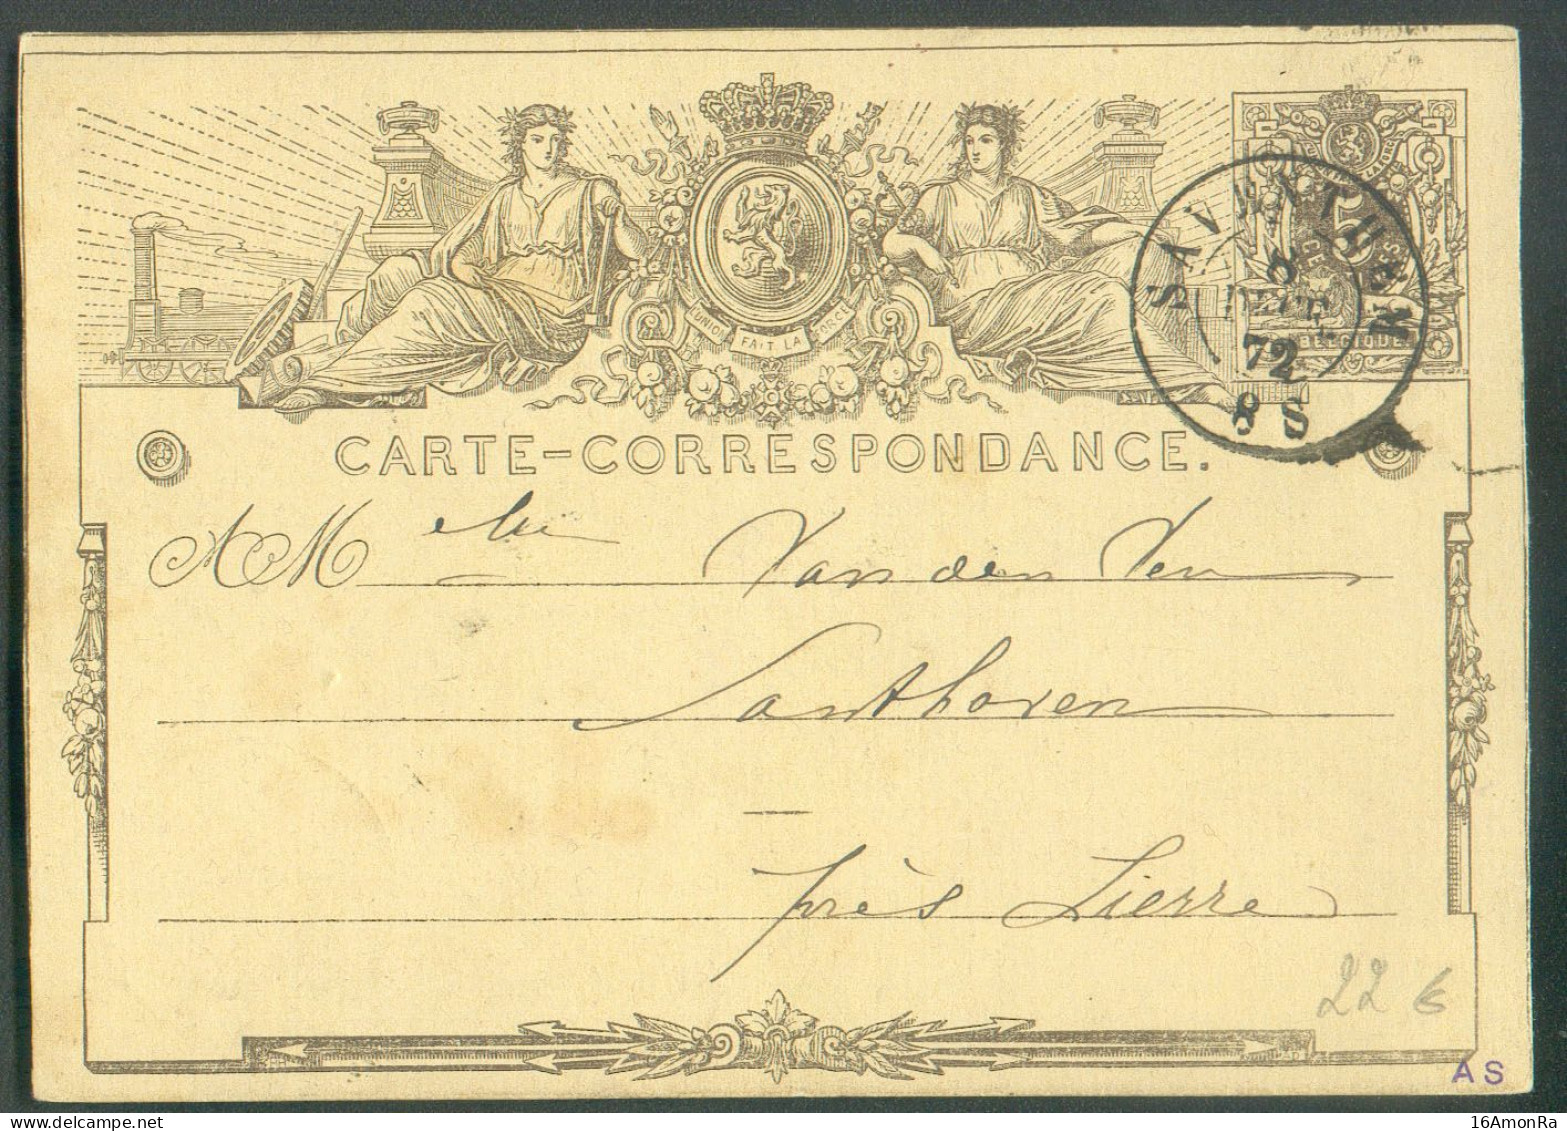 UNION FAIT LA FORCE
5
SAVENTHEM
DECE
72
8 S
CARTE-CORRESPONDANCE.
A M elle Van den Ven
Santhoven
près Lierre
22 €
AS
16AmonRa